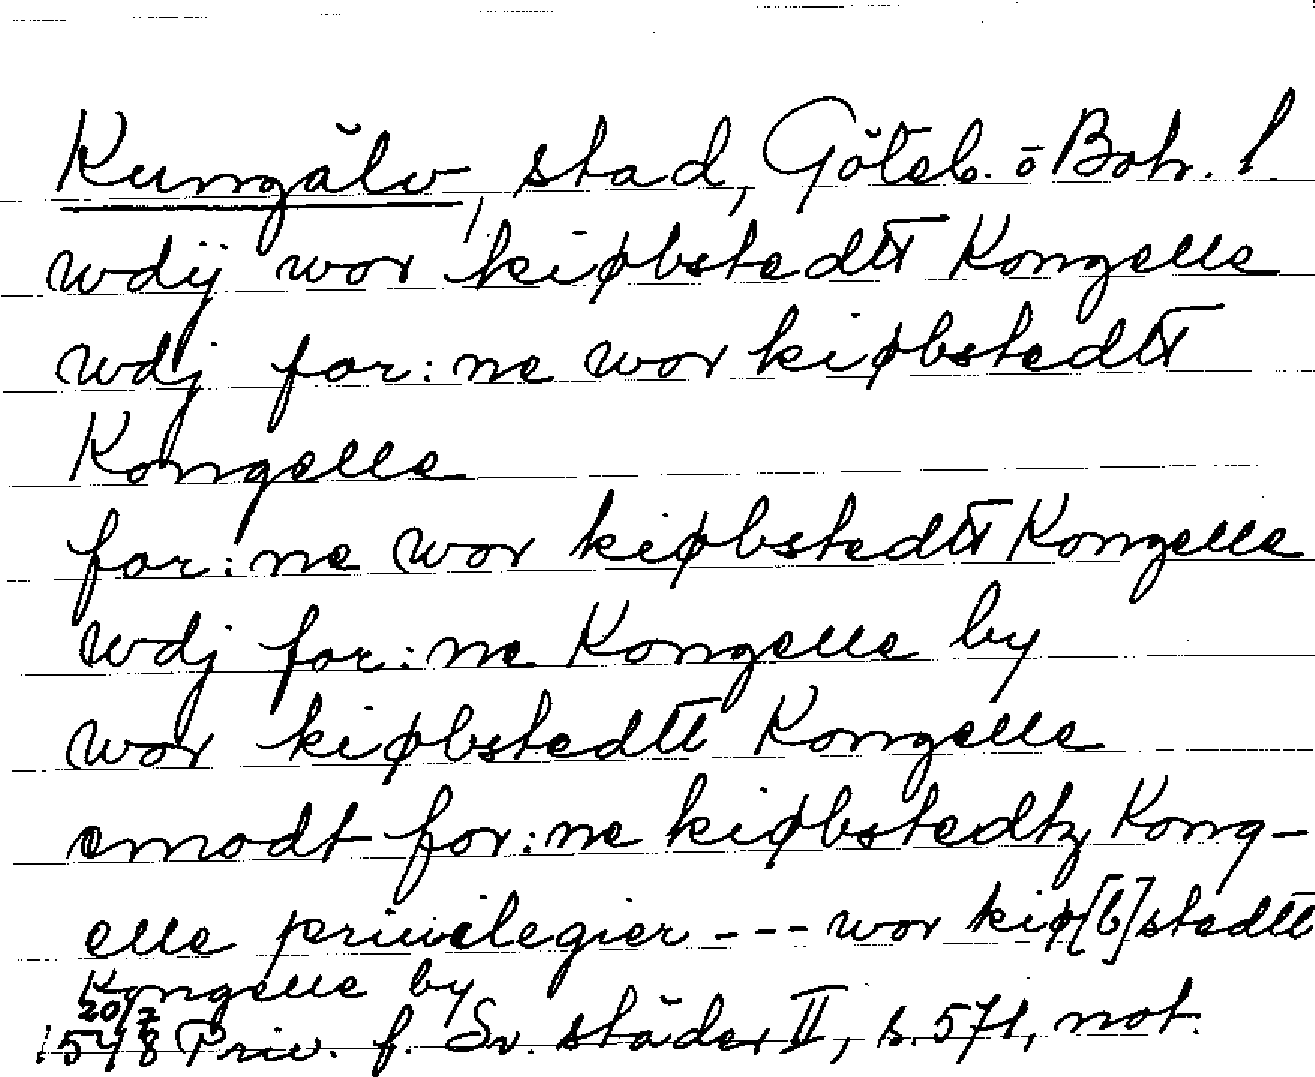 Kungälv, stad, Göteb. o Boh. l.
wdij wor kiøbstedtt Kongelle
wdj for:ne wor kiøbstedtt
Kongelle
for:ne wor kiøbstedtt Kongelle
wdj for:ne Kongelle by
wor kiøbstedtt Kongelle
emodt for:ne kiøbstedtz Kong-
elle priuilegier --- wor kiø[b]stedtt
Kongelle by
20/7
1548 Priv. f. Sv. städer II, s. 571, not.